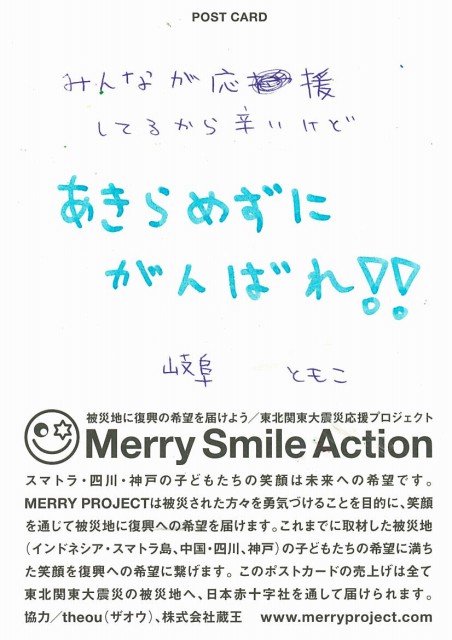 POST CARD
みんなが応援
してるから辛いけど
あきらめずに
がんばれ!!
岐阜 ともこ
被災地に復興の希望を届けよう/東北関東大震災応援プロジェクト
Merry Smile Action
スマトラ・四川・神戸の子どもたちの笑顔は未来への希望です。
MERRY PROJECTは被災された方々を勇気づけることを目的に、笑顔
を通じて被災地に復興への希望を届けます。これまでに取材した被災地
(インドネシア・スマトラ島、中国・四川、神戸)の子どもたちの希望に満ち
た笑顔を復興への希望に繋げます。このポストカードの売上げは全て
東北関東大震災の被災地へ、日本赤十字社を通して届けられます。
協力/theou(ザオウ)、株式会社蔵王 www.merryproject.com